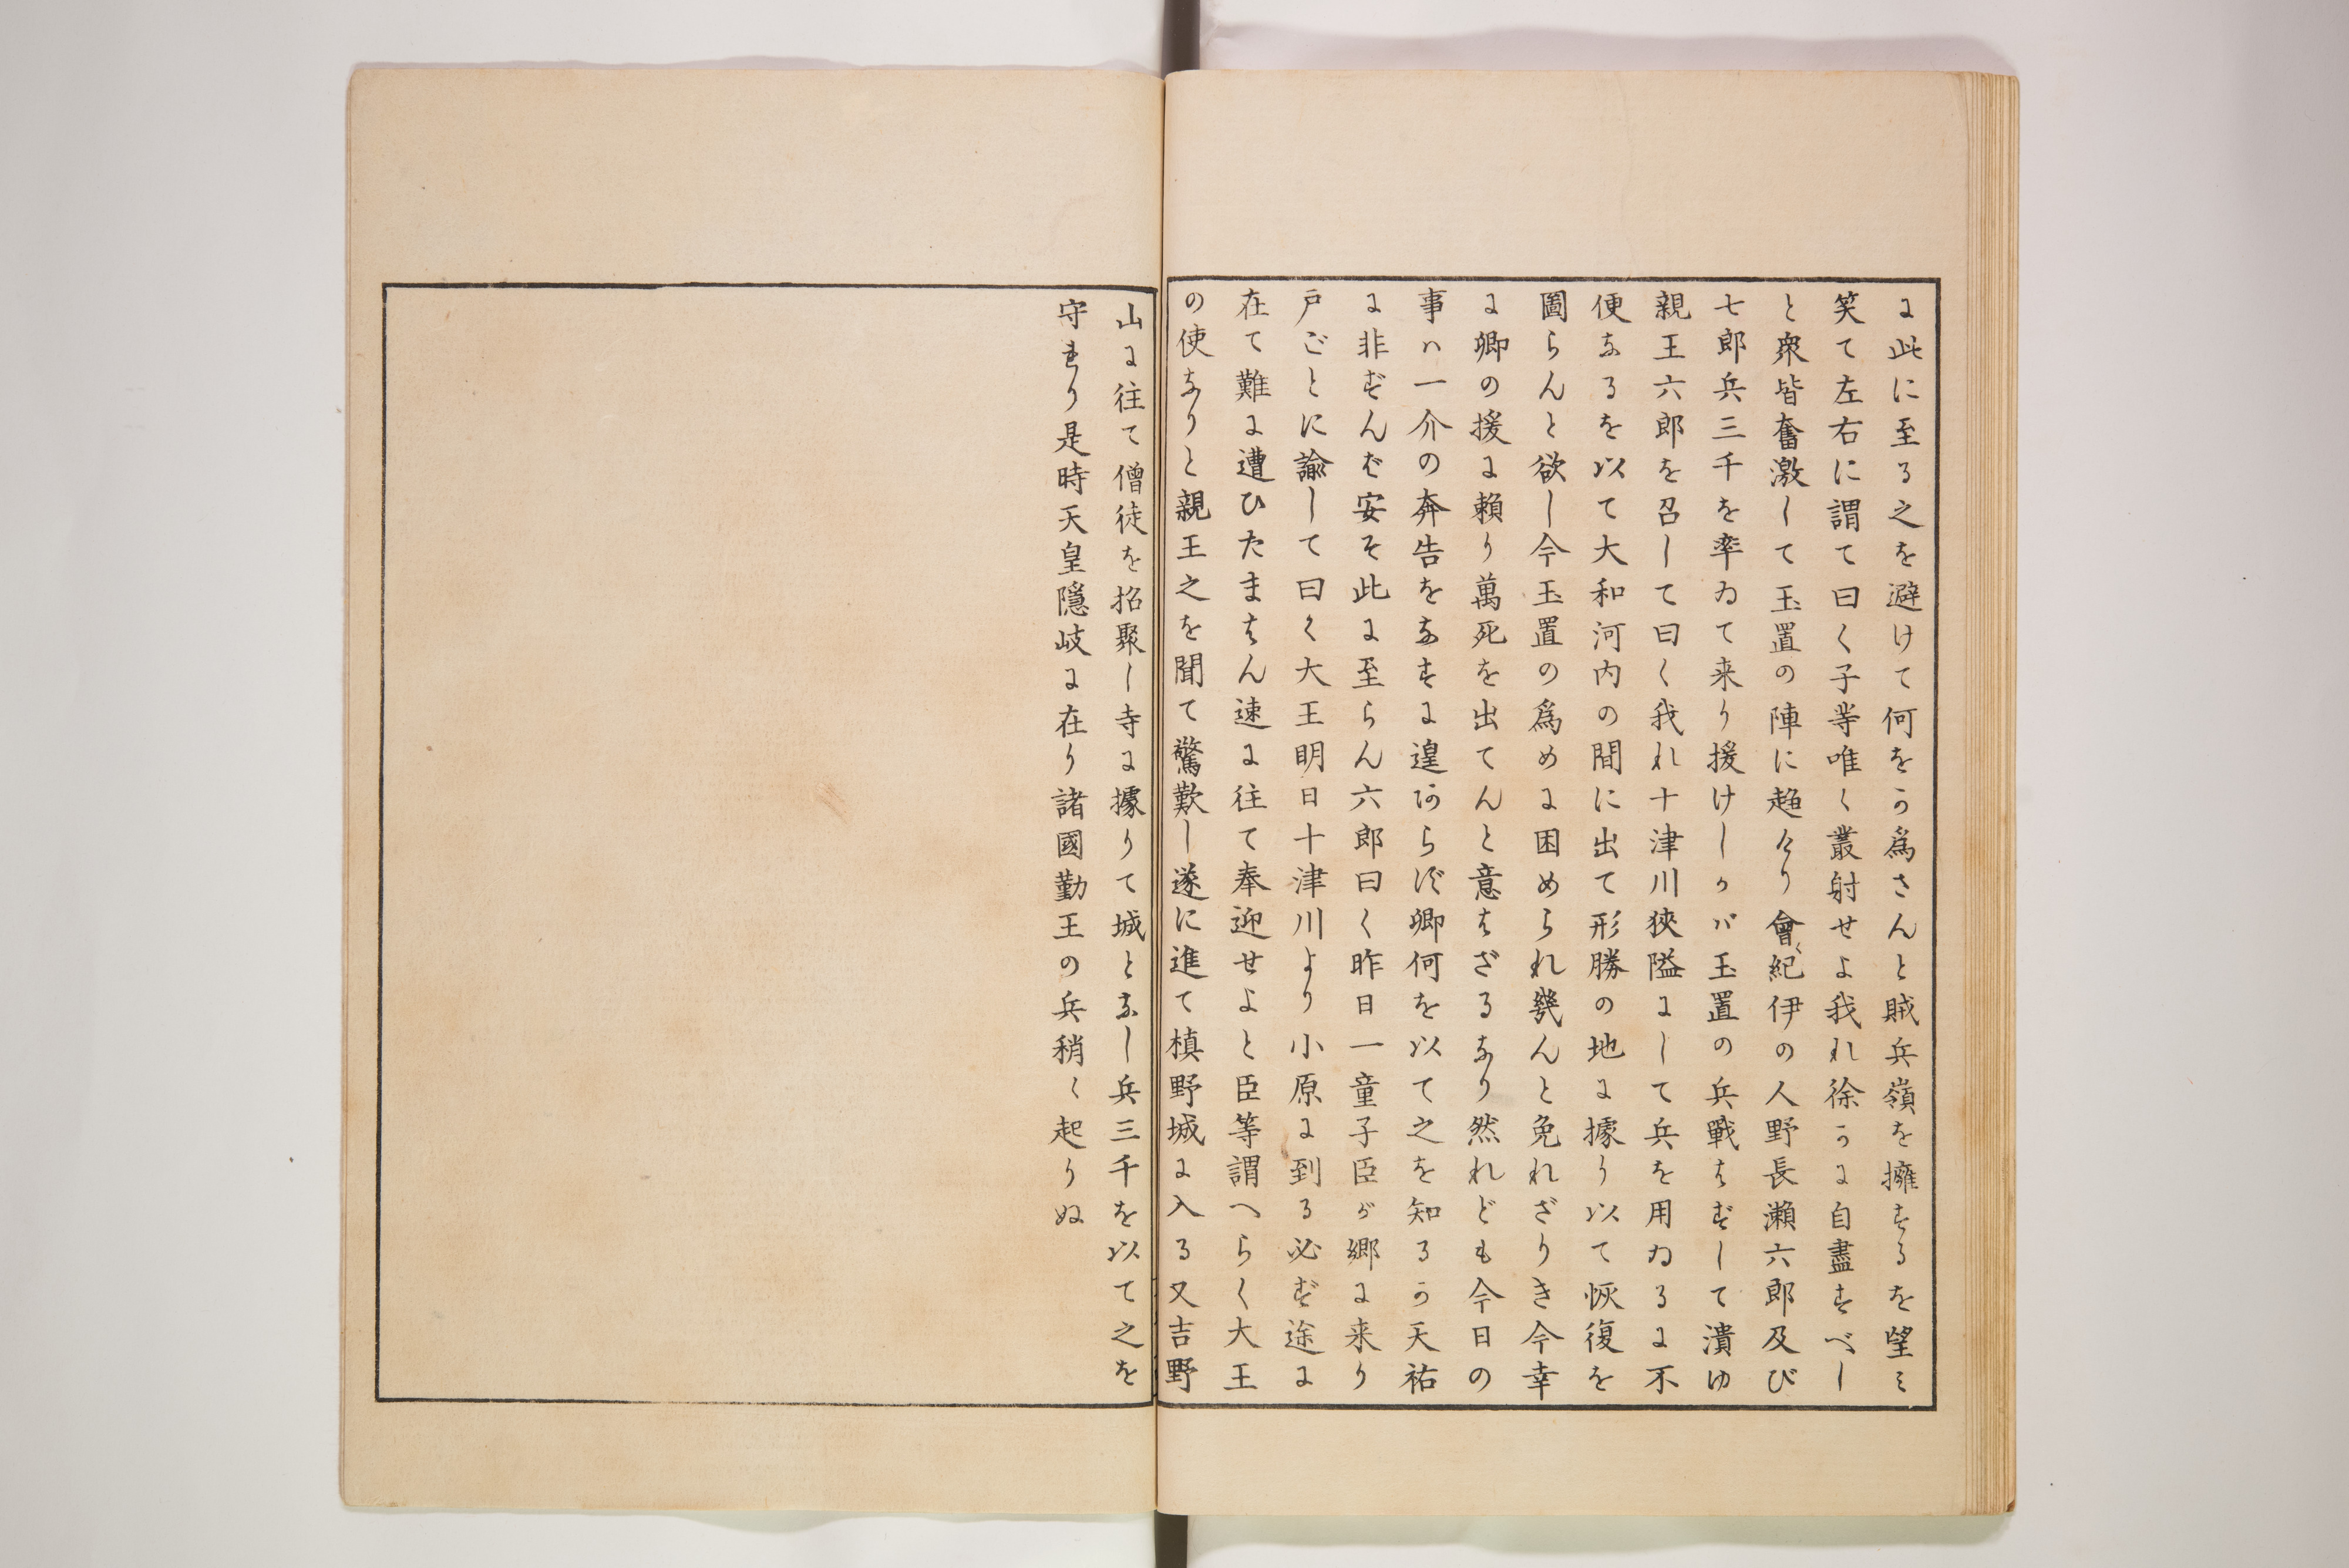 に此に至る之を避けて何をか爲さんと賊兵嶺を擁するを望ミ
笑て左右に謂て曰く子等唯く叢射せよ我れ徐かに自盡すべし
と衆皆奮激して玉置の陣に趨けり會〻紀伊の人野長瀬六郎及び
七郎兵三千を率ゐて来り援けしかバ玉置の兵戰はずして潰ゆ
親王六郎を召して曰く我れ十津川狹隘にして兵を用ゐるに不
便なるを以て大和河内の間に出て形勝の地に據り以て恢復を
圖らんと欲し今玉置の爲めに困められ幾んと免れざりき今幸
に卿の援に賴り萬死を出てんと意はざるなり然れども今日の
事ハ一介の奔告をなすに遑あらず卿何を以て之を知るか天祐
に非ずんば安そ此に至らん六郎曰く昨日一童子臣が郷に来り
戸ごとに諭して曰く大王明日十津川より小原に到る必ず途に
在て難に遭ひたまはん速に往て奉迎せよと臣等謂へらく大王
の使なりと親王之を聞て驚歎し遂に進て槙野城に入る又吉野
山に往て僧徒を招聚し寺に據りて城となし兵三千を以て之を
守れり是時天皇隱岐に在り諸國勤王の兵稍く起りぬ